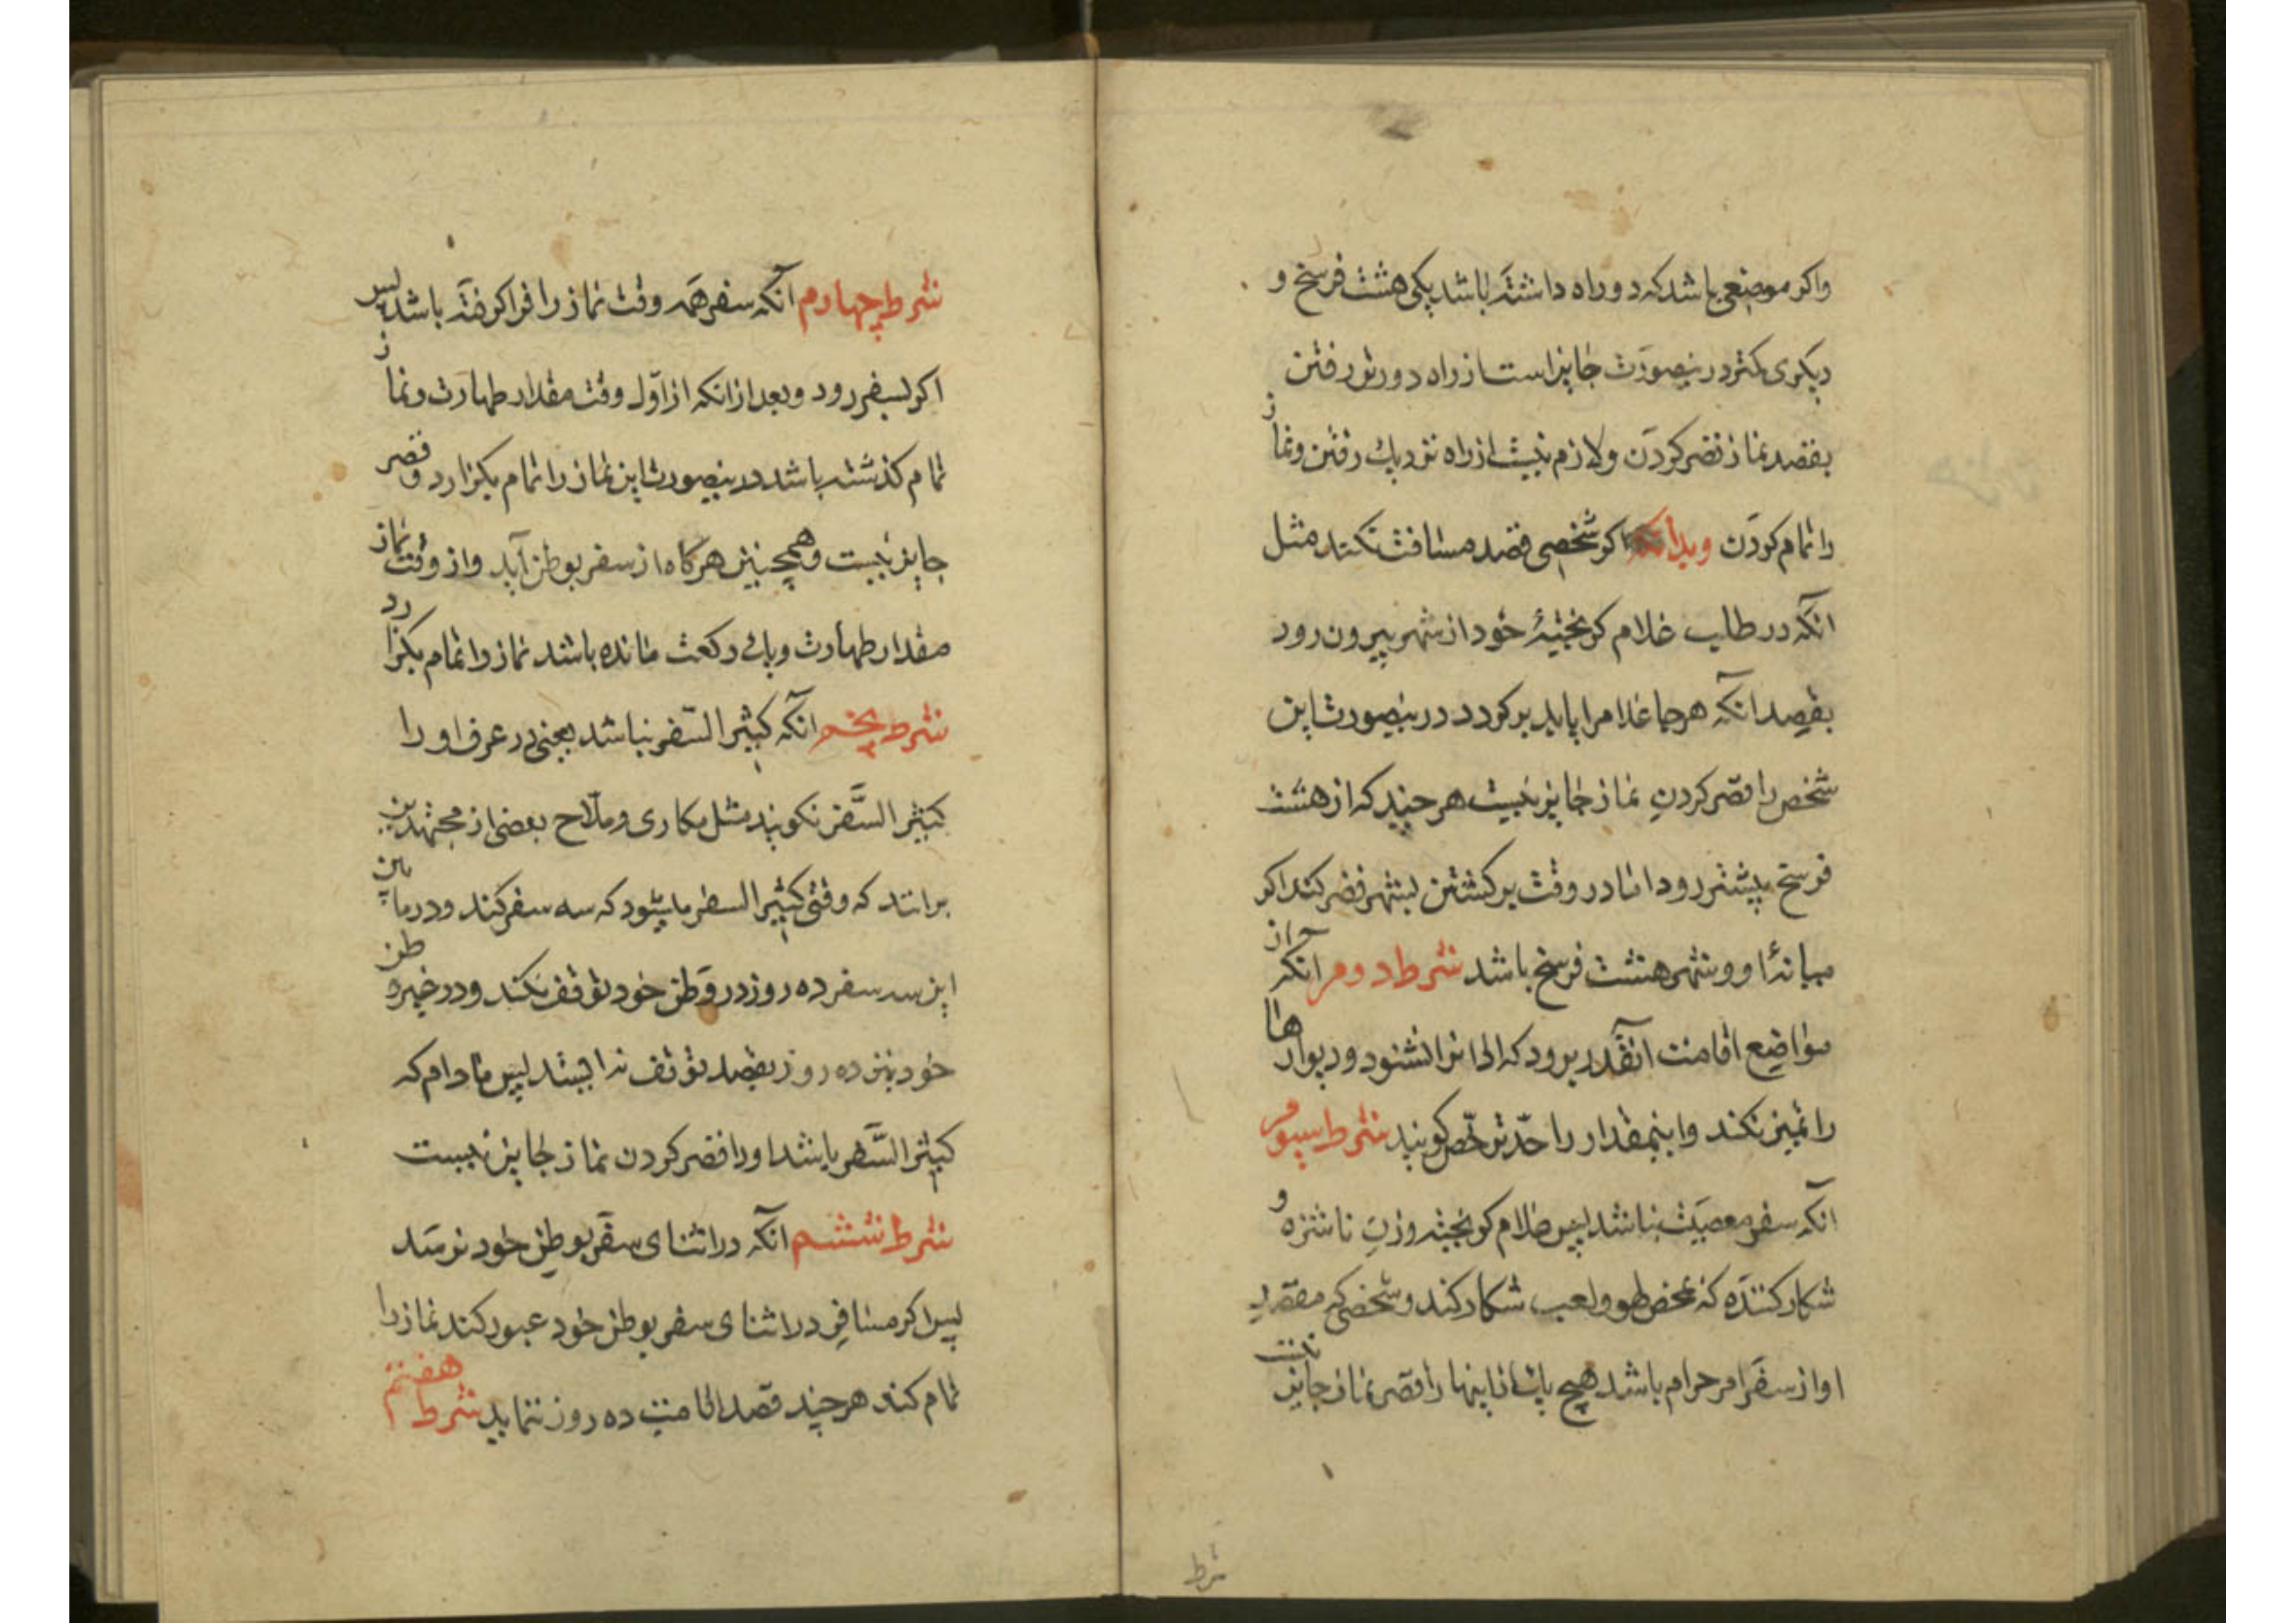 واکر موضعی باشد که دو راه داشته باشد یکی هشت فرسخ و
دیکری کمتر درینصورت جایز است از راه دورتر رفتن
بقصد نماز قصر کردن ولازم نیست از راه نزدیک رفتن ونماز
را تمام کردن وبدانکه اکر شخصی قصد مسافت نکند مثل
آنکه در طلب غلام کریختهٔ خود از شهر بیرون رود
بقصد آنکه هرجا غلام را یابد برکردد درینصورت این
شخص را قصر کردن نماز جایز نیست هرچند که از هشت
فرسخ بیشتر رود اما در وقت برکشتن بشهر قصر کند اکر
میانهٔ او وشهر هشت فرسخ باشد شرط دوم آنکه از
مواضع اقامت آنقدر برود که اذانرا نشنود ودیوارها
را تمیز نکند واینمقدار را حدّ ترخّص کویند شرط سیوم
آنکه سفر معصیت نباشد پس غلام کریخته وزن ناشزه و
شکار کننده که محض لهو ولعب شکار کند وشخصی که مقصد
او از سفر امر حرام باشد هیچ یک از اینها را قصر نماز جایز نیست
شرط
شرط چهارم آنکه سفر همه وقت نماز را فرا کرفته باشد پس
اکر بسفر رود وبعد از انکه از اوّل وقت مقدار طهارت ونماز
تمام کذشته باشد درینصورت این نماز را تمام بکزارد وقصر
جایز نیست وهمچنین هرکاه از سفر بوطن آید واز وقت نماز
مقدار طهارت ویک رکعت مانده باشد نماز را تمام بکزارد
شرط پنجم آنکه کثیر السّفر نباشد یعنی در عرف او را
کثیر السَّفر نکویند مثل مکاری وملّاح بعضی از مجتهدین
برانند که وقتی کثیر السفر میشود که سه سفر کند ودر مابین
این سه سفر ده روز در وطن خود توقف نکند ودر غیر وطن
خود نیز ده روز بقصد توقف نه ایستد پس مادام که
کثیر السَّفر باشد او را قصر کردن نماز جایز نیست
شرط ششم آنکه در اثنای سفر بوطن خود نرسد
پس اکر مسافر در اثنای سفر بوطن خود عبور کند نماز را
تمام کند هرچند قصد اقامت ده روز ننماید شرط هفتم